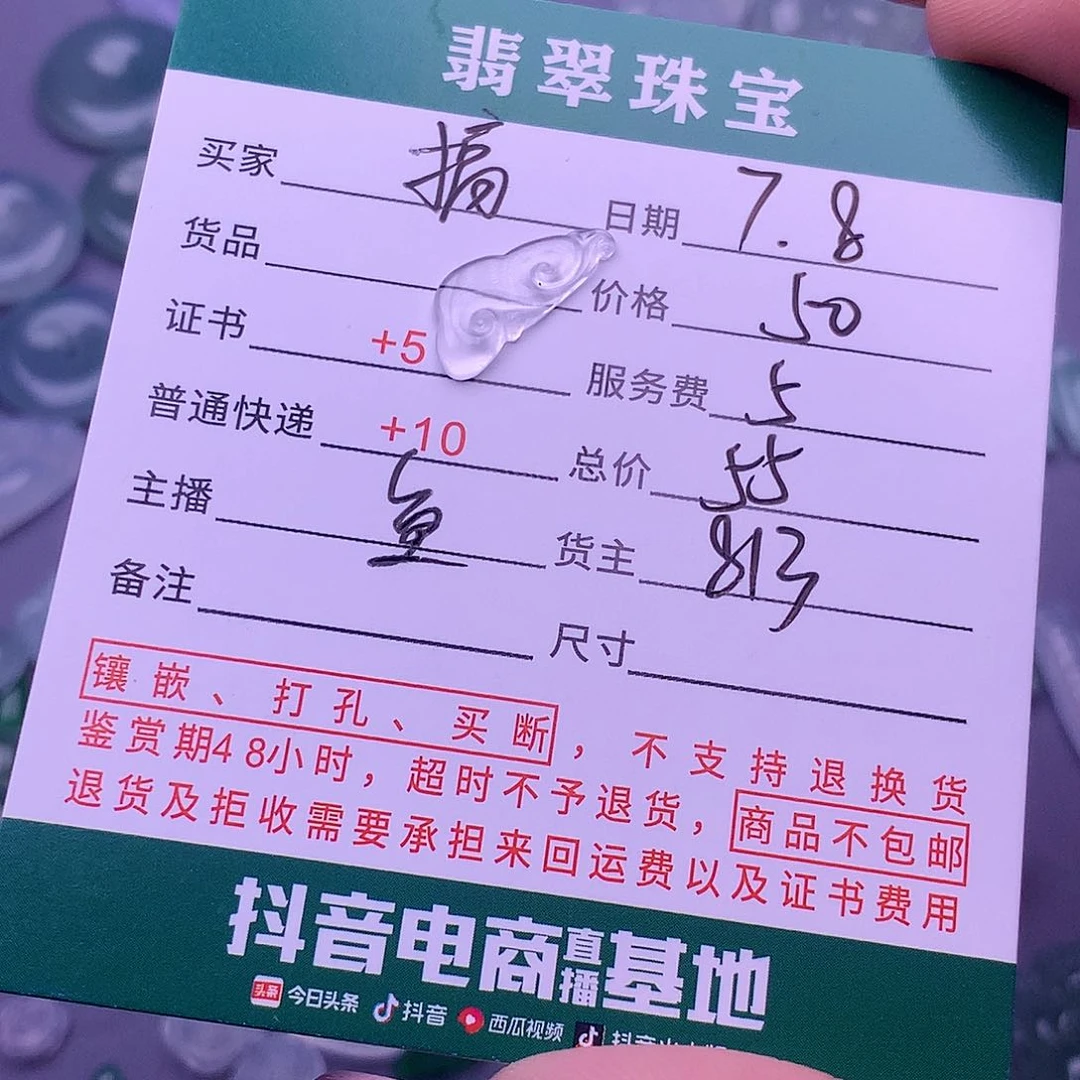 翡翠珠宝
买家 搞 日期 7.8
货品 价格 50
证书 +5 服务费 5
普通快递 +10 总价 55
主播 鱼 货主 813
备注 尺寸
镶嵌、打孔、买断，不支持退换货
鉴赏期48小时，超时不予退货，商品不包邮
退货及拒收需要承担来回运费以及证书费用
抖音电商直播基地
头条 今日头条 抖音 西瓜视频